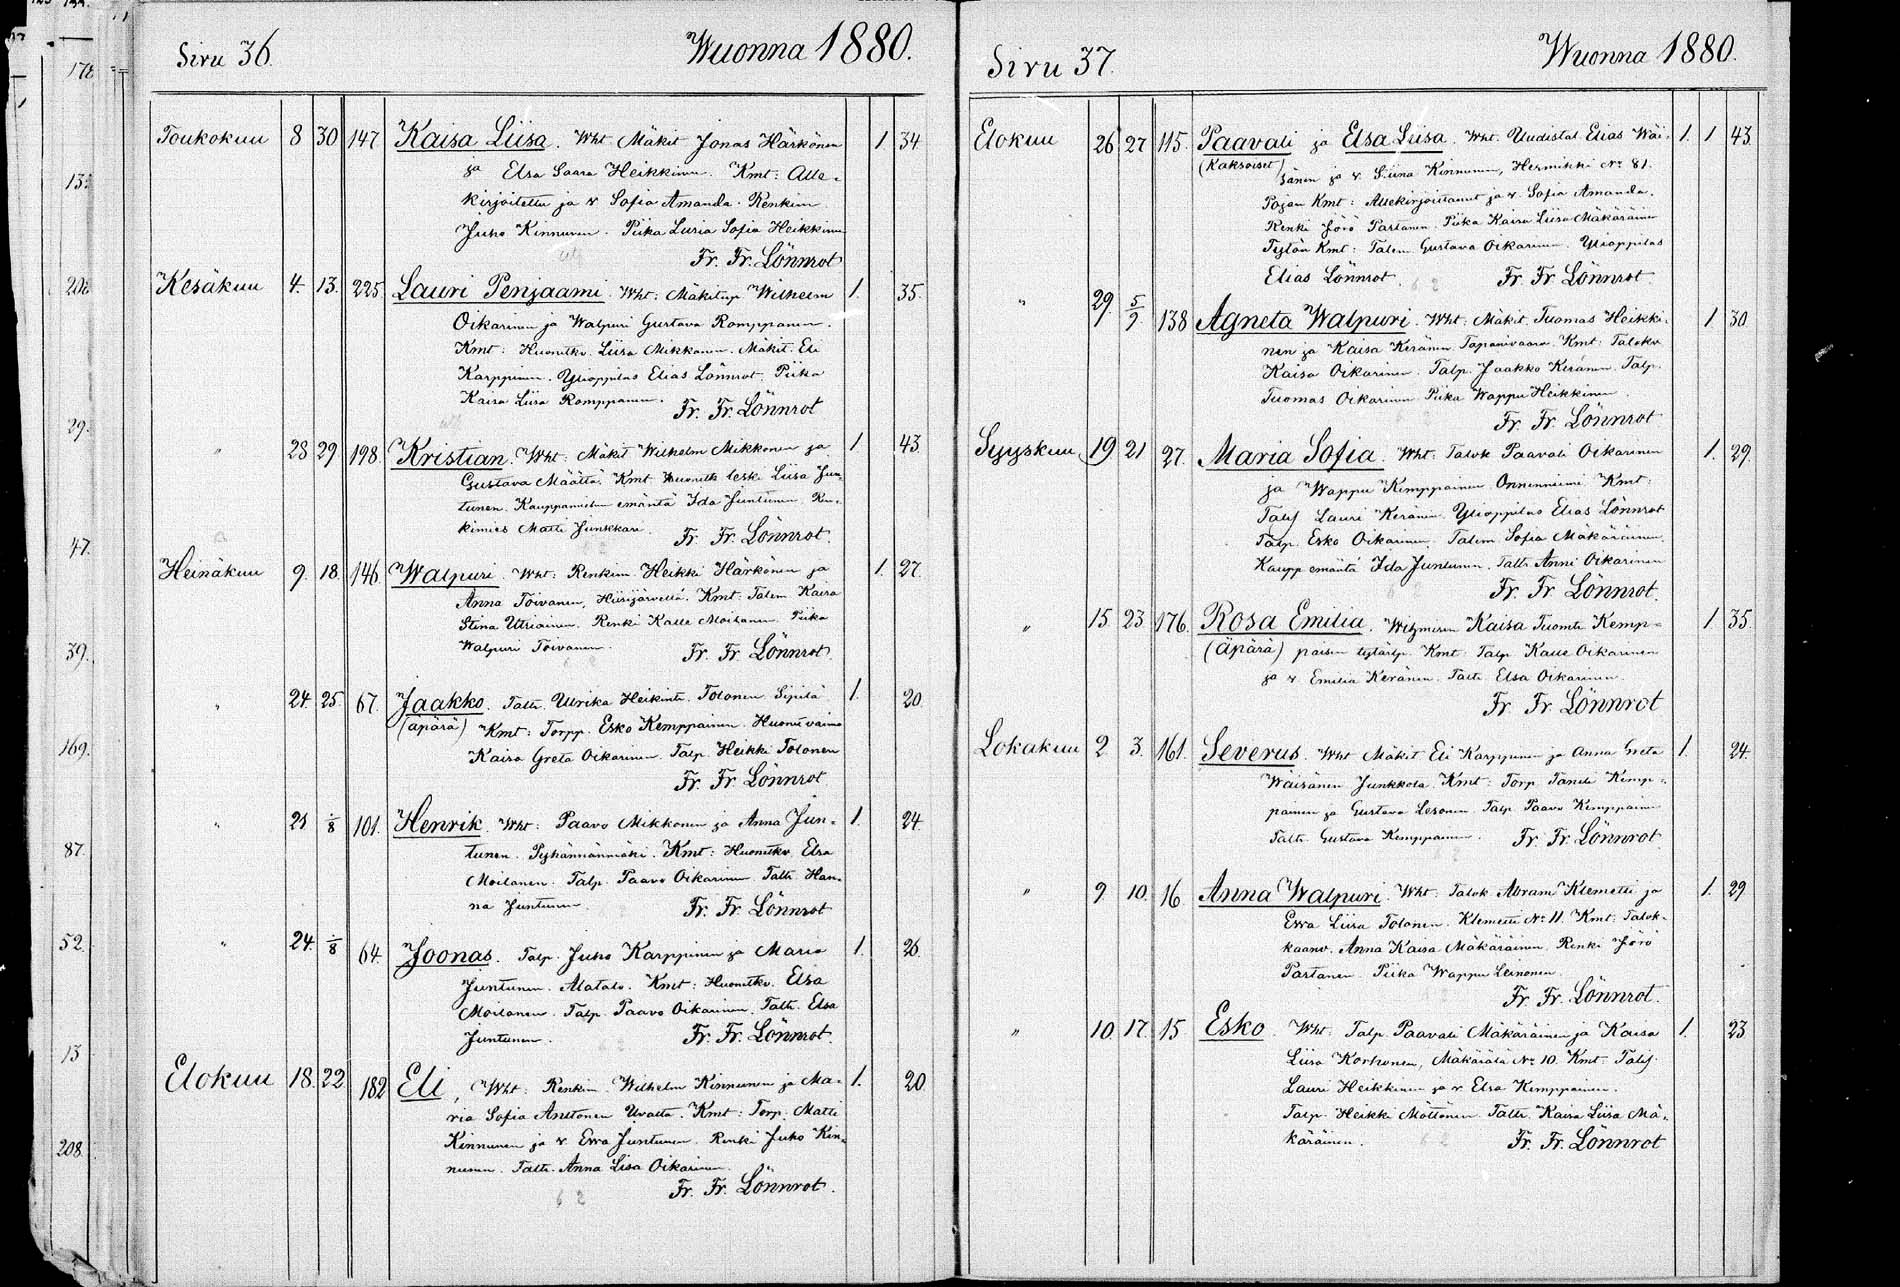 Sivu 36. Wuonna 1880.
Toukokuu 8 30 147 Kaisa Liisa. Wht Mäkit Jonas Härkönen 1. 34
ja Elsa Saara Heikkinen. Kmt: Alle-
kirjoitettu ja v Sofia Amanda. Renkim
Juho Kinnunen. Piika Liisa Sofia Heikkinen
Fr. Fr. Lönnrot
Kesäkuu 4. 13. 225. Lauri Penjaami. Wht: Mäkitup Wilhelm 1. 35.
Oikarinen ja Walpuri Gustava Romppanen.
Kmt: Huonetkv. Liisa Mikkonen. Mäkit. Eli
Karppinen. Ylioppilas Elias Lönnrot. Piika
Kaisa Liisa Romppanen. Fr. Fr. Lönnrot
" 28 29 198. Kristian. Wht: Mäkit Wilhelm Mikkonen ja 1. 43.
Gustava Määttä. Kmt Huonetk leski Liisa Jun-
tunen. Kauppamiehen emäntä Ida Juntunen. Ren-
kimies Matti Junkkari. Fr. Fr. Lönnrot.
Heinäkuu 9. 18. 146. Walpuri. Wht: Renkim. Heikki Härkönen ja 1. 27.
Anna Toivanen, Hiirijärvellä. Kmt: Talem Kaisa
Stina Utriainen. Renki Kalle Moilanen. Piika
Walpuri Toivanen. Fr. Fr. Lönnrot.
" 24. 25. 67. Jaakko. Taltr. Ulrika Heikintr. Tolonen Sipilä 1. 20.
(äpärä) Kmt: Torpp. Esko Kemppainen. Huone vaimo
Kaisa Greta Oikarinen. Talp. Heikki Tolonen
Fr. Fr. Lönnrot
" 21 1/8 101. Henrik. Wht: Paavo Mikkonen ja Anna Jun- 1. 24.
tunen. Pyhännänmäki. Kmt: Huonetkv. Elsa
Moilanen. Talp. Paavo Oikarinen Taltr. Han-
na Juntunen. Fr. Fr. Lönnrot
" 24. 1/8 64. Joonas. Talp. Juho Karppinen ja Maria 1. 26.
Juntunen. Alatalo. Kmt: Huonetkv. Elsa
Moilanen. Talp. Paavo Oikarinen. Taltr. Elsa
Juntunen. Fr. Fr. Lönnrot.
Elokuu 18. 22 182 Eli, Wht: Renkim Wilhelm Kinnunen ja Ma- 1. 20
ria Sofia Anttonen Uvalta. Kmt: Torp. Matti
Kinnunen ja v. Ewa Juntunen. Renki Juho Kin-
nunen. Taltr. Anna Lisa Oikarinen.
Fr. Fr. Lönnrot.
Sivu 37. Wuonna 1880.
Elokuu 26 27 115. Paavali ja Elsa Liisa. Wht. Uudistal Elias Wäi- 1. 1 43.
(Kaksoiset) sänen ja v. Siina Kinnunen, Hermikki No 81.
Pojan Kmt: Allekirjoittanut ja v. Sofia Amanda.
Renki Jörö Partanen. Piika Kaisa Liisa Mäkäräinen
Tytön Kmt: Talem. Gustava Oikarinen. Ylioppilas
Elias Lönnrot. Fr. Fr. Lönnrot.
" 29. 5/9. 138 Agneta Walpuri. Wht: Mäkit. Tuomas Heikki- 1. 30.
nen ja Kaisa Keränen. Tapanivaara. Kmt: Talokv
Kaisa Oikarinen. Talp. Jaakko Keränen. Talp.
Tuomas Oikarinen Piika Wappu Heikkinen.
Fr. Fr. Lönnrot
Syyskuu 19 21 27. Maria Sofia. Wht. Talok Paavali Oikarinen 1. 29.
ja Wappu Kemppainen Onnenniemi Kmt:
Talij Lauri Keränen. Ylioppilas Elias Lönnrot
Talp. Esko Oikarinen. Talem. Sofia Mäkäräinen.
Kaupp emäntä Ida Juntunen. Taltr. Anni Oikarinen
Fr. Fr. Lönnrot.
" 15. 23. 176. Rosa Emilia. Kaisa Tuomtr Kemp- 1 35.
(Äpärä) paisen tytärlp. Kmt: Talp. Kalle Oikarinen
ja v. Emilia Keränen. Taltr Elsa Oikarinen.
Fr. Fr. Lönnrot
Lokakuu 2 3. 161. Severus. Wht Mäkit Eli Karppinen ja Anna Greta 1. 24.
Wäisänen Junkkola. Kmt: Torp Taneli Kemp-
painen ja Gustava Lesonen. Talp. Paavo Kemppainen
Taltr. Gustava Kemppainen. Fr. Fr. Lönnrot.
" 9. 10. 16. Anna Walpuri. Wht. Talok Abram Klemetti ja 1. 29
Ewa Liisa Tolonen. Klemetti No 11. Kmt: Talok-
kaanv. Anna Kaisa Mäkäräinen. Renki Jörö
Partanen. Piika Wappu Leinonen.
Fr. Fr. Lönnrot.
" 10. 17. 15 Esko. Wht: Talp. Paavali Mäkäräinen ja Kaisa 1. 23
Liisa Korhonen, Mäkärälä No 10. Kmt. Talij.
Lauri Heikkinen ja v. Elsa Kemppainen.
Talp. Heikki Möttönen Taltr. Kaisa Liisa Mä-
käräinen. Fr. Fr. Lönnrot